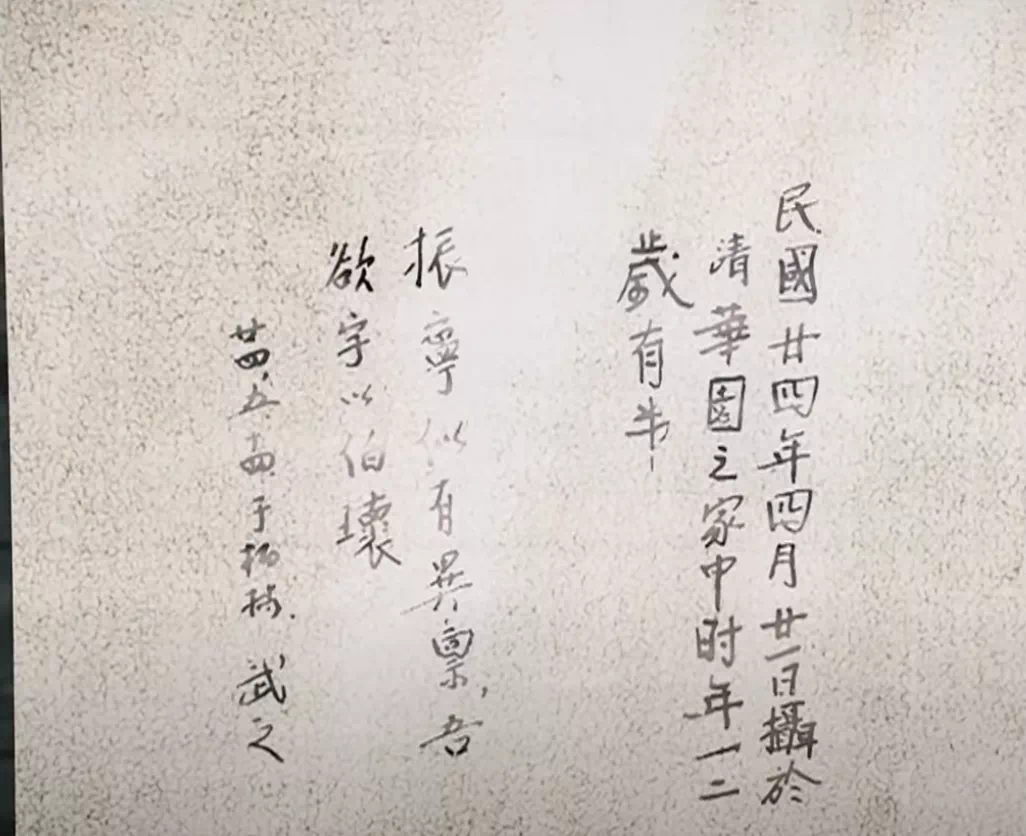 民國廿四年四月廿一日攝於
清華園之家中时年一二
歲有半
振寧似有異禀,吾
欲字以伯瓌
廿四,五,十四于柏林. 武之